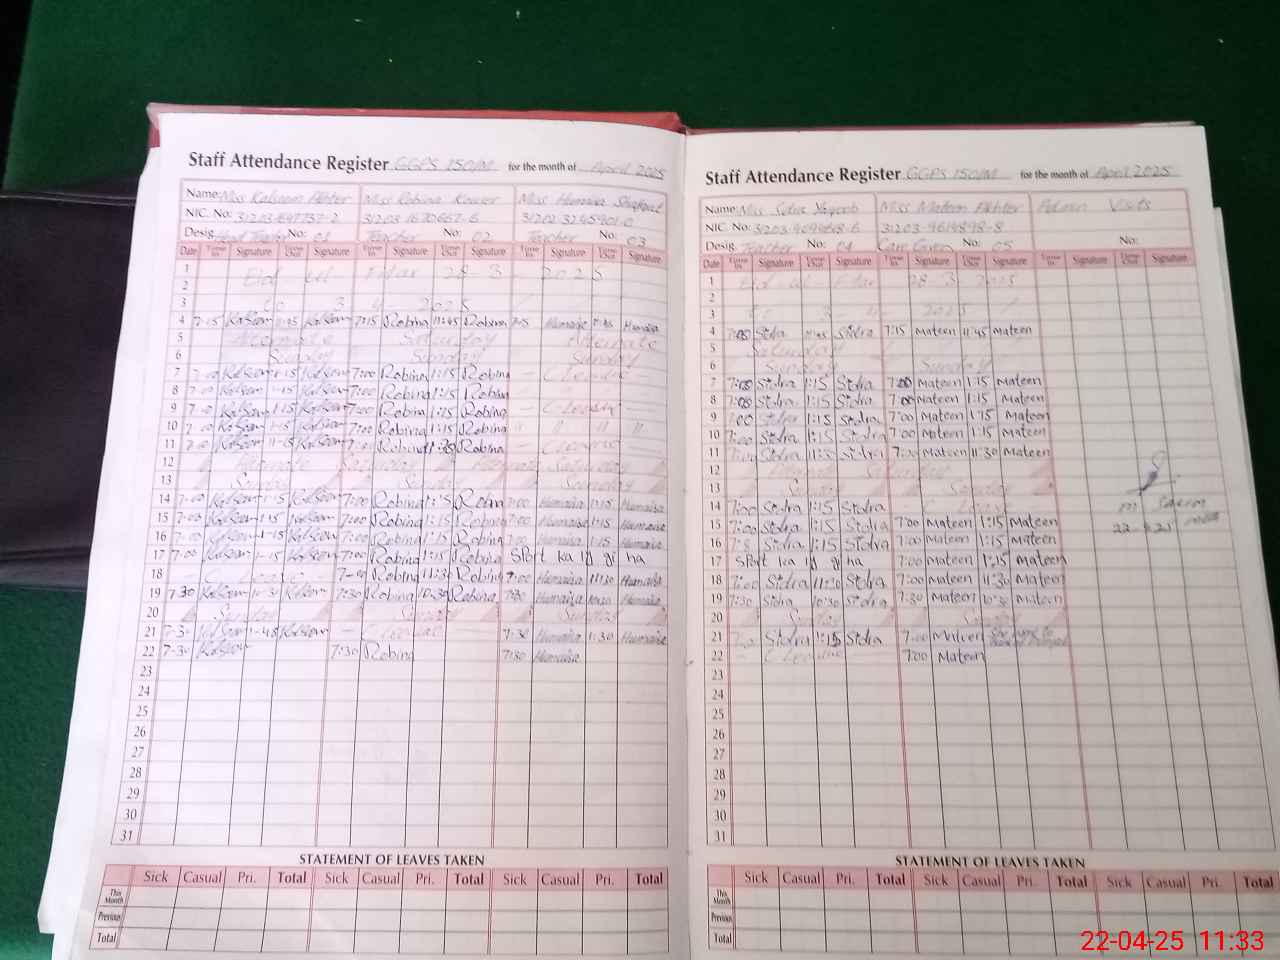 Staff Attendance Register GGPS 150/M for the month of April 2025
Name: Miss Kalsoom Akhter Miss Robina Kouser Miss Humaira
NIC. No:
Desig. Head Teacher No: 01 Teacher No: 02 Teacher No: 03
Date Time In Signature Time Out Signature Time In Signature Time Out Signature Time In Signature Time Out Signature
1 Eid ul Fitar 28-3 2025
2
3 to 3 4 - 2025
4 7:15 Kalsoom 11:45 Kalsoom 7:15 Robina 11:45 Robina Humaira Humaira
5 Alternate Saturday Alternate
6 Sunday Sunday Sunday
7 7:00 Kalsoom 1:15 Kalsoom 7:00 Robina 1:15 Robina - C Leave -
8 7:00 Kalsoom 1:15 Kalsoom 7:00 Robina 1:15 Robina
9 7:00 Kalsoom 1:15 Kalsoom 7:00 Robina 1:15 Robina - C Leave -
10 7:00 Kalsoom 1:15 Kalsoom 7:00 Robina 1:15 Robina " " " "
11 7:00 Kalsoom 11:15 Kalsoom Robina Robina - C Leave -
12 Alternate Saturday Alternate Saturday
13 Sunday Sunday Sunday
14 7:00 Kalsoom 1:15 Kalsoom 7:00 Robina 1:15 Robina 7:00 Humaira 1:15 Humaira
15 7:00 Kalsoom 1:15 Kalsoom 7:00 Robina 1:15 Robina 7:00 Humaira 1:15 Humaira
16 7:00 Kalsoom 1:15 Kalsoom 7:00 Robina 1:15 Robina 7:00 Humaira 1:15 Humaira
17 7:00 Kalsoom 1:15 Kalsoom 7:00 Robina 1:15 Robina Short ha
18 C Leave - 7:00 Robina 11:30 Robina 7:00 Humaira 11:30 Humaira
19 7:30 Kalsoom 10:30 Kalsoom 7:30 Robina 10:30 Robina Humaira 10:30 Humaira
20 Sunday Sunday
21 7:30 Kalsoom 1:45 Kalsoom - C Leave - 7:30 Humaira 1:30 Humaira
22 7:30 Kalsoom 7:30 Robina 7:30 Humaira
23
24
25
26
27
28
29
30
31
STATEMENT OF LEAVES TAKEN
Sick Casual Pri. Total Sick Casual Pri. Total Sick Casual Pri. Total
This Month
Previous
Total
Staff Attendance Register GGPS 150/M for the month of April 2025
Name: Miss Sidra Yaqoob Miss Mateen Akhter Visits
NIC. No:
Desig. Teacher No: 04 Care Giver No: 05 No:
Date Time In Signature Time Out Signature Time In Signature Time Out Signature Time In Signature Time Out Signature
1 Eid ul Fitar 28 3 2025
2
3 to 3 - 4 - 2025
4 Sidra 11:45 Sidra 7:15 Mateen 11:45 Mateen
5 Saturday
6 Sunday Sunday
7 7:00 Sidra 1:15 Sidra 7:00 Mateen 1:15 Mateen
8 7:00 Sidra 1:15 Sidra 7:00 Mateen 1:15 Mateen
9 7:00 Sidra 1:15 Sidra 7:00 Mateen 1:15 Mateen
10 7:00 Sidra 1:15 Sidra 7:00 Mateen 1:15 Mateen
11 7:00 Sidra Sidra 7:00 Mateen 11:30 Mateen
12 Alternate Saturday
13 Sunday Sunday
14 7:00 Sidra 1:15 Sidra - C Leave
15 7:00 Sidra 1:15 Sidra 7:00 Mateen 1:15 Mateen
16 Sidra 1:15 Sidra 7:00 Mateen 1:15 Mateen
17 Short ha 7:00 Mateen 1:15 Mateen
18 7:00 Sidra 11:30 Sidra 7:00 Mateen 11:30 Mateen
19 7:30 Sidra 10:30 Sidra 7:30 Mateen 10:30 Mateen
20 Sunday Sunday
21 Sidra 1:15 Sidra 7:00 Mateen
22 - C Leave 7:00 Mateen
23
24
25
26
27
28
29
30
31
STATEMENT OF LEAVES TAKEN
Sick Casual Pri. Total Sick Casual Pri. Total Sick Casual Pri. Total
This Month
Previous
Total
22-04-25 11:33